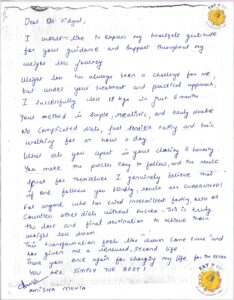 Dear Dr Vidyut,
I would like to express my heartfelt gratitude
for your guidance and support throughout my
weight loss journey
Weight loss has always been a challenge for me,
but under your treatment and practical approach,
I successfully lost 18 kgs in just 6 months
Your method is simple, realistic, and truly doable
No complicated diets, just sensible eating and basic
walking for an hour a day.
What sets you apart is your clarity & honesty
You make the process easy to follow, and the results
speak for themselves I genuinely believe that
if one follows you blindly, results are GUARANTEED!
For anyone who has tried intermittent fasting keto or
countless other diets without success - This is truly
the last and final destination to achieve their
weight loss dream
This transformation feels like dream come true and
has given me a renewed, second life
Thank you once again for changing my life for the better
YOU ARE SIMPLY THE BEST!
AMISHA MEHTA